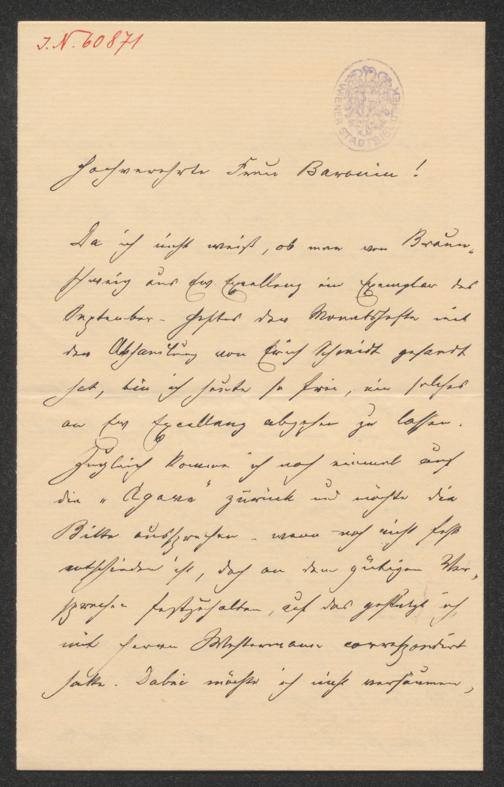 J.N. 60871
WIENER STADTBIBLIOTHEK
Hochverehrte Frau Baronin!
Da ich nicht weiß, ob man von Braun-
schweig aus Ew Excellenz ein Exemplar des
September-Heftes der Monatshefte mit
der Abhandlung von Erich Schmidt gesandt
hat, bin ich heute so frei, ein solches
an Ew Excellenz abgehen zu lassen.
Zugleich komme ich noch einmal auf
die "Agave" zurück und möchte die
Bitte aussprechen - wenn noch nicht fest
entschieden ist, doch an dem gütigen Ver-
sprechen festzuhalten, auf das gestützt ich
mit Herrn Westermann correspondirt
hatte. Dabei möchte ich nicht versäumen,